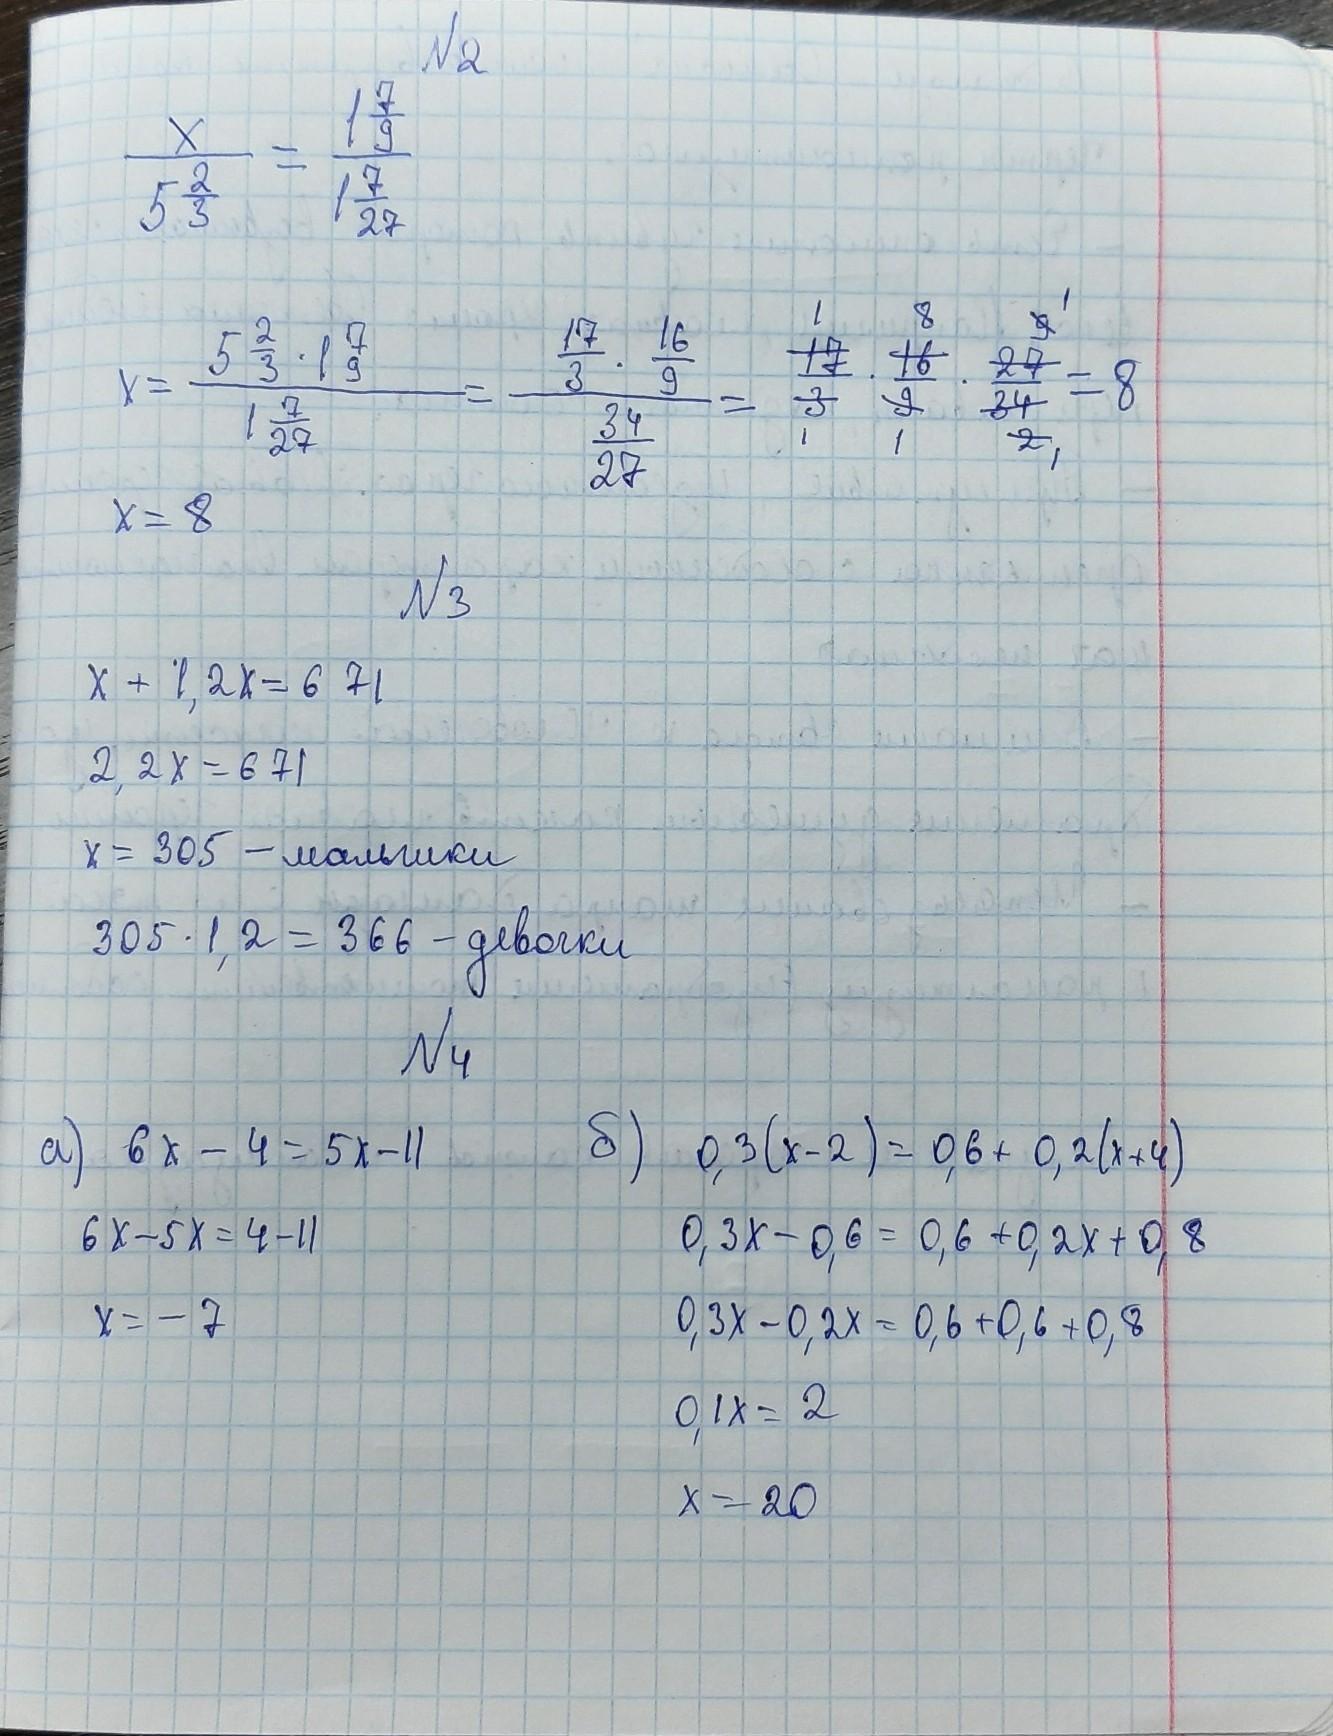 N2
x / 5 2/3 = 1 7/9 / 1 7/27
x = 5 2/3 · 1 7/9 / 1 7/27 = 17/3 · 16/9 / 34/27 = 17/3 · 16/9 · 27/34 = 8
x = 8
N3
x + 1,2x = 671
2,2x = 671
x = 305 – мальчики
305 · 1,2 = 366 – девочки
N4
а) 6x – 4 = 5x – 11
6x – 5x = 4 – 11
x = – 7
б) 0,3(x – 2) = 0,6 + 0,2(x + 4)
0,3x – 0,6 = 0,6 + 0,2x + 0,8
0,3x – 0,2x = 0,6 + 0,6 + 0,8
0,1x = 2
x = 20